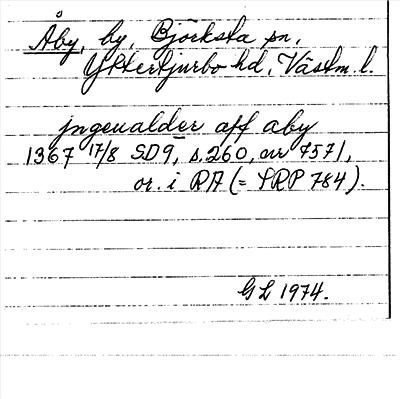 Åby, by, Björksta sn,
Yttertjurbo hd, Västm. l.
jngeualder aff aby
1367 17/8 SD9, s.260, nr 7571,
or. i RA (= SRP 784).
GL 1974.